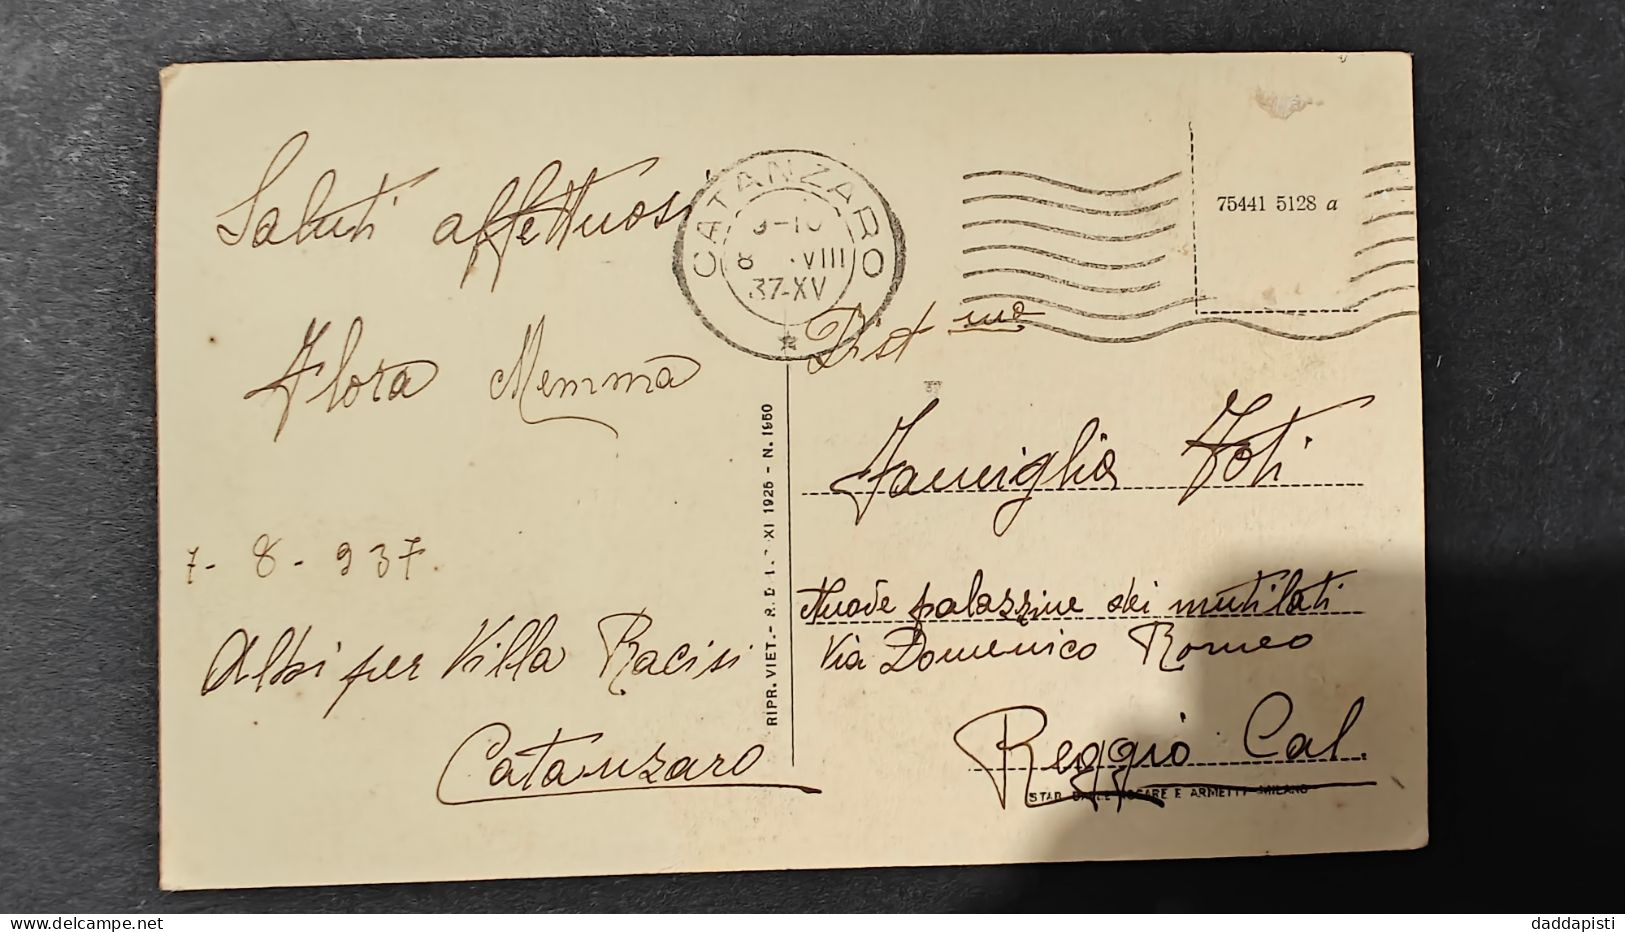 Saluti affettuosi
Flora Memma
7-8-937.
Albi per Villa Racisi
Catanzaro
CATANZARO
8 VIII
37-XV
75441 5128 a
Dist mo
Famiglia Foti
Nuove palazzine dei mutilati
Via Domenico Romeo
Reggio Cal.
RIPR. VIET. - XI 1925 - N. 1950
E ARMETTI - MILANO
delcampe.net
daddapisti